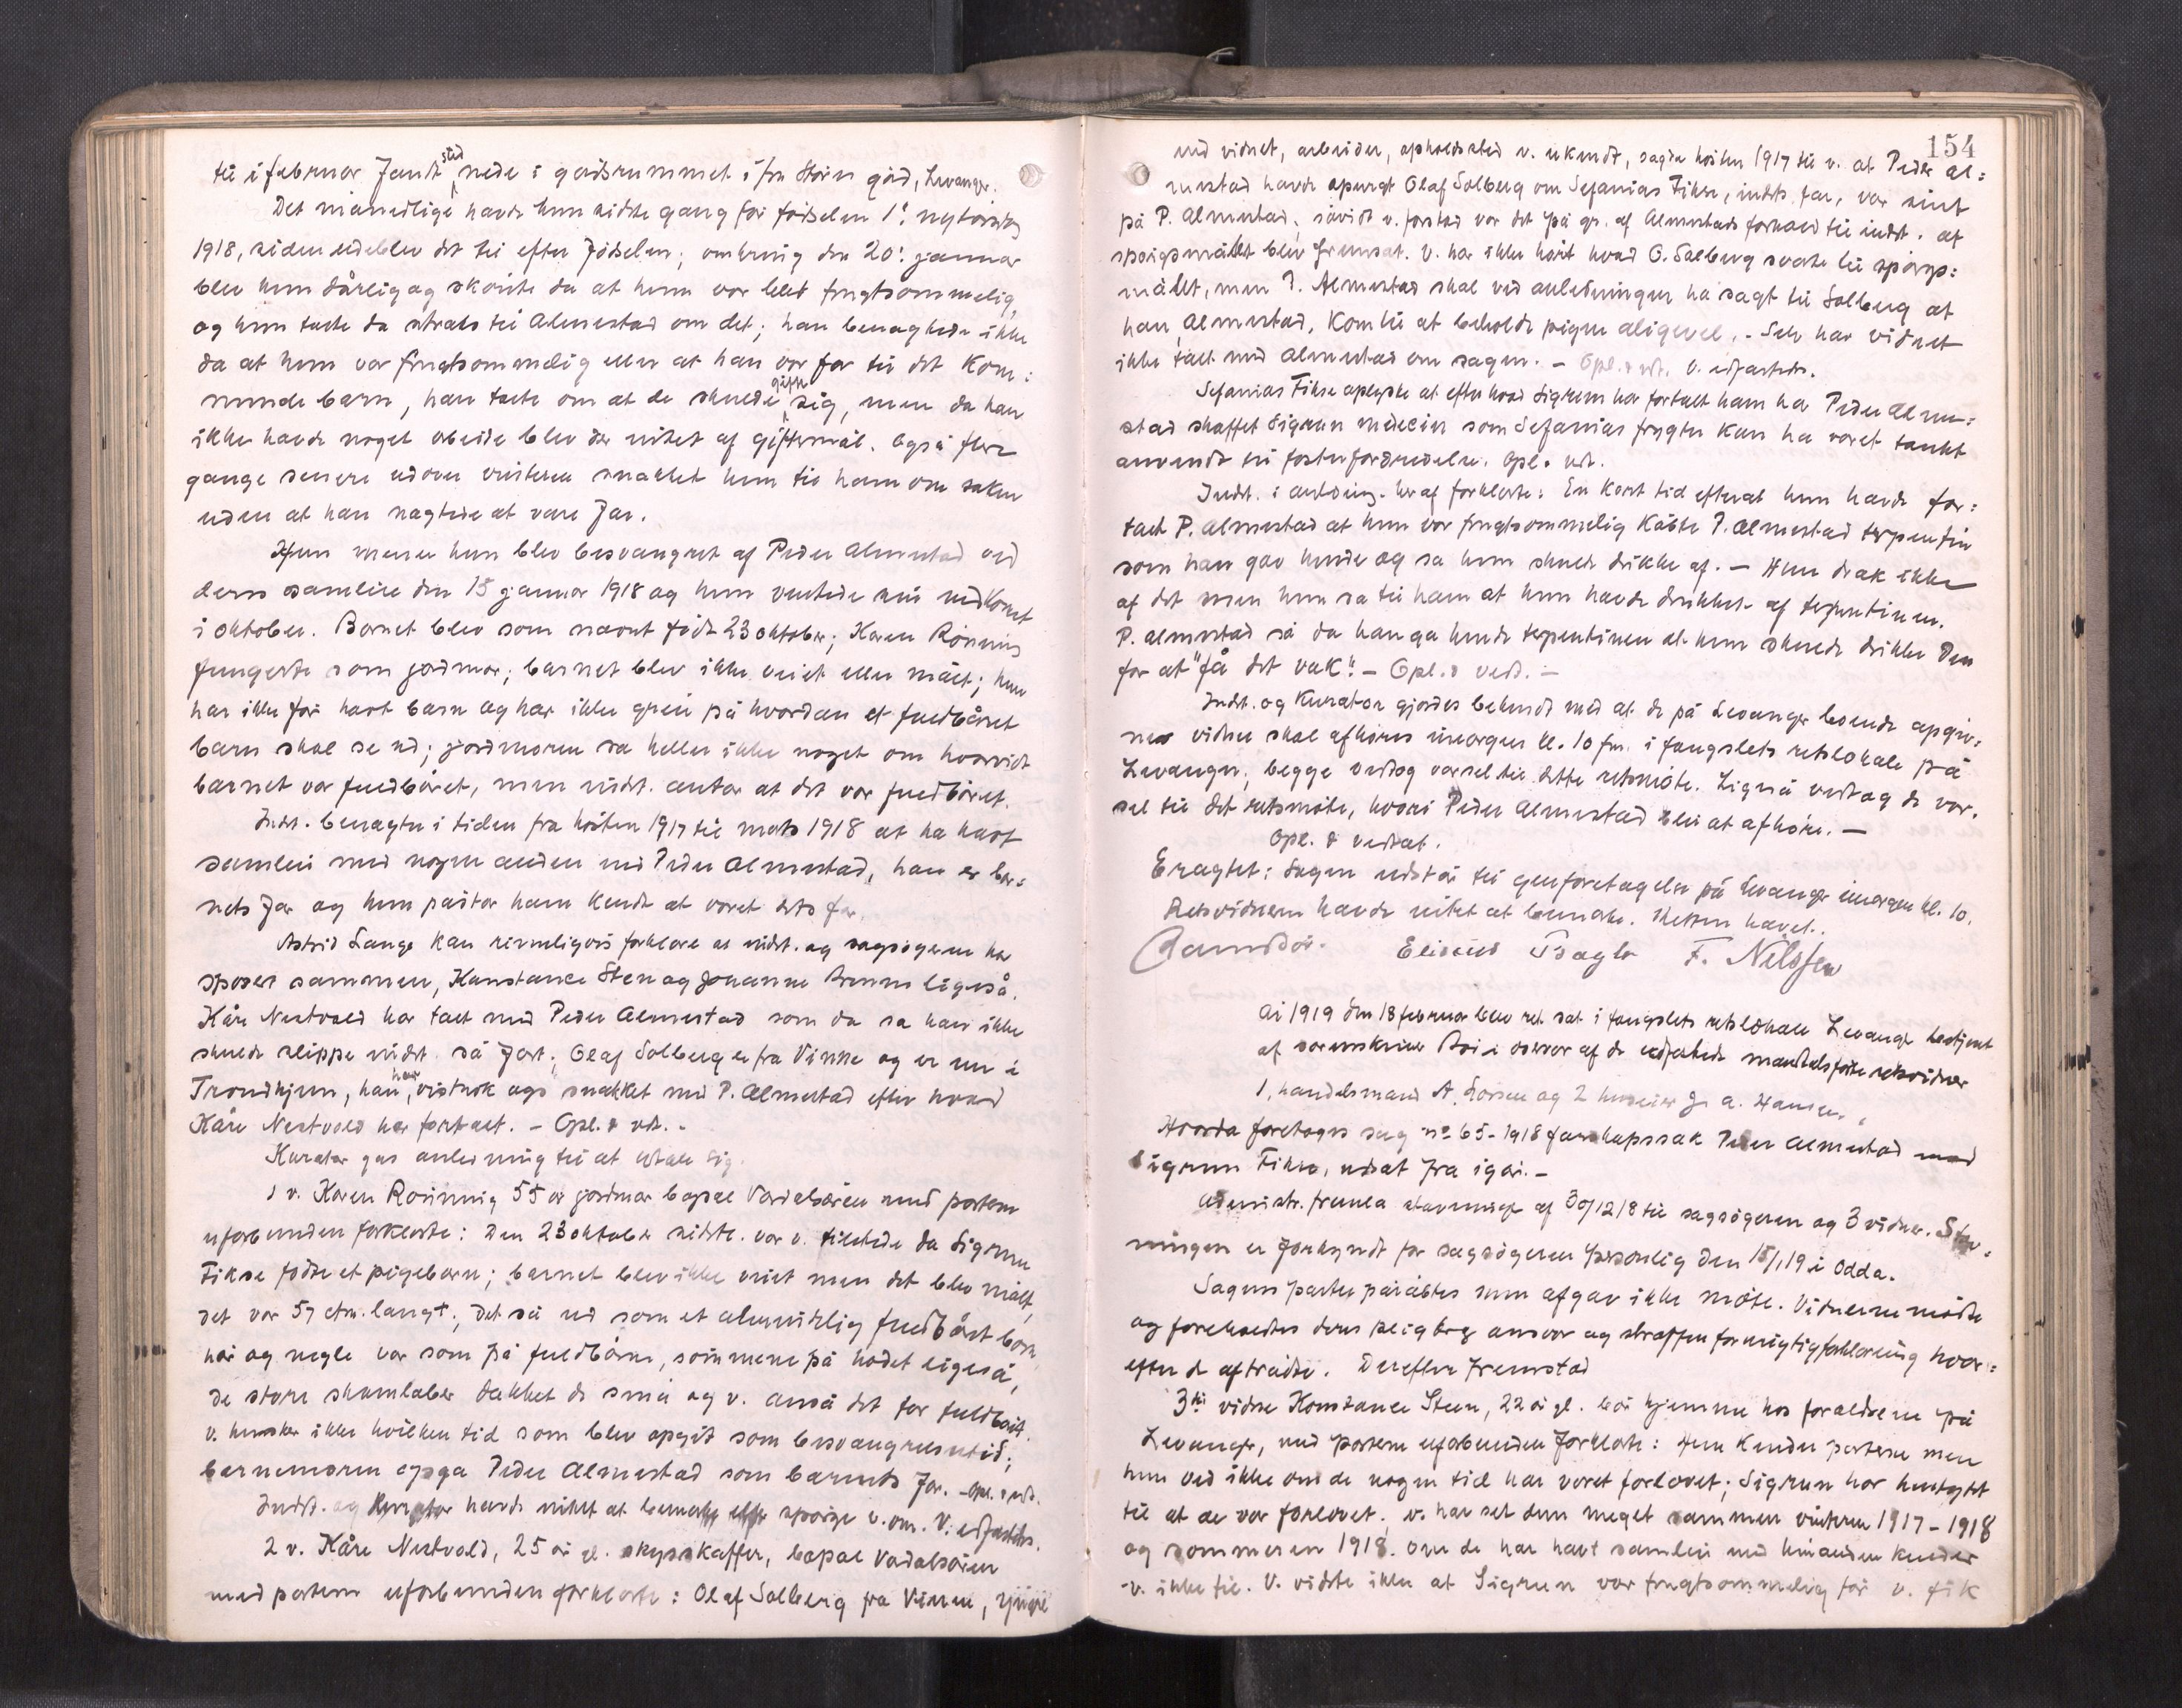 til i februar fandt sted nede i gårdsrummet i frk Störes gård, Levanger.
Det månedlige havde hun sidste gang för födselen 1ste nytårsdag
1918, siden udeblev det til efter födselen; omkring den 20de januar
blev hun dårlig og skönte da at hun var blet frugtsommelig,
og hun talte da straks til Almestad om det; han benægtede ikke
da at hun var frugtsommelig eller at han var far til det kom:
mende barn, han talte om at de skulde gifte sig, men da han
ikke havde noget arbeide blev der intet af giftermål. Også flere
gange senere udover vinteren snakket hun til ham om saken
uden at han nægtede at være far.
Hun mener hun blev besvangret af Peder Almestad ved
deres samleie den 15 januar 1918 og hun ventede sin nedkomst
i oktober. Barnet blev som nævnt födt 23 oktober; Karen Rönning
fungerte som jordmor; barnet blev ikke veiet eller målt; hun
har ikke för havt barn og har ikke greie på hvordan et fuldbåret
barn skal se ud; jordmoren sa heller ikke noget om hvorvidt
barnet var fuldbåret, men indst. antar at det var fuldbåret.
Indst. benægter i tiden fra hösten 1917 til mars 1918 at ha havt
samleie med nogen anden end Peder Almestad, han er bar:
nets far og hun påstår ham kendt at være dets far.
Astrid Lange kan rimeligvis forklare at indst. og sagsögeren har
spasert sammen, Konstance Sten og Johanne Brenne ligeså.
Kåre Nestvold har talt med Peder Almestad som da sa han ikke
skulde slippe indst. så fort; Olaf Solberg er fra Vinne og er nu i
Trondhjem, han har vistnok ogs snakket med P. Almestad efter hvad
Kåre Nestvold har fortalt. - Opl. & vdt. -
Kurator gas anledning til at uttale sig.
1 v. Karen Rönning 55 år jordmor bopæl Verdalsören med partene
uforbunden forklarte: Den 23 oktober sidstl. var v. tilstede da Sigrun
Fikse födte et pigebarn; barnet blev ikke veiet men det blev målt,
det var 57 ctm. langt; det så ud som et almindelig fuldbåret barn,
hår og negle var som på fuldbårne, sömmene på hodet ligeså,
de store skamlæber dækket de små og v. anså det for fuldbåret.
v. husker ikke hvilken tid som blev opgit som besvangrelsestid;
barnemoren opga Peder Almestad som barnets far. - Opl. & vdt.
Indst. og Kurator havde intet at bemærke eller spörge v. om. V. edfæstedes.
2 v. Kåre Nestvold, 25 år gl. skysskaffer, bopæl Verdalsören
med partene uforbunden forklarte: Olaf Solberg fra Vinne,
154
ved vidnet, arbeider, opholdssted v. ukendt, sagde hösten 1917 til v. at Peder Al:
mestad havde spurgt Olaf Solberg om Sefanias Fikse, indsts. far, var sint
på P. Almestad; såvidt v. forstod var det på gr. af Almestads forhold til indst. at
spörgsmålet blev fremsat. V. har ikke hört hvad O. Solberg svarte til spörgs:
målet, men P. Almestad skal ved anledningen ha sagt til Solberg at
han, Almestad, kom til at beholde pigen aligevel. - Selv har vidnet
ikke talt med Almestad om sagen. - Opl. & vdt. V. edfæstedes.
Sefanias Fikse oplyste at efter hvad Sigrun har fortalt ham har Peder Alme:
stad skaffet Sigrun medecin som Sefanias frygter kan ha været tænkt
anvendt til fosterfordrivelse. Opl. & vdt.
Indst. i anledning heraf forklarte: En kort tid efterat hun havde for:
talt P. Almestad at hun var frugtsommelig köbte P. Almestad terpentin
som han gav hende og sa hun skulde drikke af. - Hun drak ikke
af det men hun sa til ham at hun havde drukket af terpentinen.
P. Almestad sa da han ga hende terpentinen at hun skulde drikke den
for at "få det væk". - Opl. & vedt. -
Indst. og Kurator gjordes bekendt med at de på Levanger boende opgiv:
ne vidner skal afhöres imorgen kl. 10 fm. i fængslets retslokale på
Levanger; begge vedtog varsel til dette retsmöte. Ligeså vedtog de var:
sel til det retsmöte, hvori Peder Almestad blir at afhöre. -
Opl. & vedtat.
Eragtet: Sagen udstår til genforetagelse på Levanger imorgen kl. 10.
Retsvidnerne havde intet at bemærke. Retten hævet.
Elisæus Tsagla F. Nilssen
År 1919 den 18 februar blev ret sat i fængslets retslokale Levanger betjent
af sorenskriver Roi i overvær af de edfæstede mandtalsförte retsvidner
1, handelsmand A. Larsen og 2 huseier J. A. Hansen.
Hvorda foretoges sag nº 65-1918 farskapssak Peder Almestad mod
Sigrun Fikse, udsat fra igår. -
Administr. fremla stævning af 30/12 18 til sagsögeren og 3 vidner. Stæv:
ningen er forkyndt for sagsögeren personlig den 15/1 19 i Odda.
Sagens parter påråbtes men afgav ikke möte. Vidnerne mödte
og foreholdtes deres pligt og ansvar og straffen for urigtig forklaring hvor:
efter de aftrådte. Derefter fremstod
3die vidne Konstance Steen, 22 år gl. bor hjemme hos forældrene på
Levanger, med partene uforbunden forklarte: Hun kender partene men
hun ved ikke om de nogen tid har været forlovet; Sigrun har hentydet
til at de var forlovet; v. har set dem meget sammen vinteren 1917-1918
og sommeren 1918. Om de har havt samleie med hinanden kender
v. ikke til. V. vidste ikke at Sigrun var frugtsommelig för v. fik